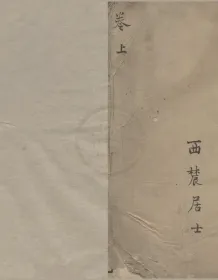 卷上
西麓居士